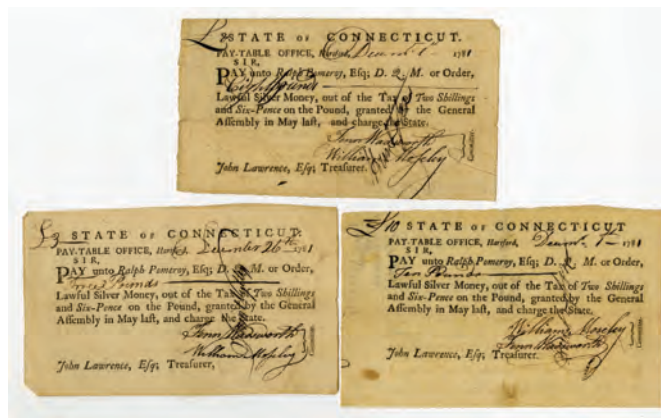 STATE OF CONNECTICUT.
PAY-TABLE OFFICE, Hartford, 1781
SIR,
PAY unto Ralph Pomeroy, Esq; D. Q. M. or Order,
Pounds
Lawful Silver Money, out of the Tax of Two Shillings
and Six-Pence on the Pound, granted by the General
Assembly in May last, and charge the State.
Fenn Wadsworth
William Moseley
Committee.
John Lawrence, Esq; Treasurer.
£3 STATE OF CONNECTICUT.
PAY-TABLE OFFICE, Hartford, December 26th 1781
SIR,
PAY unto Ralph Pomeroy, Esq; D. Q. M. or Order,
Three Pounds
Lawful Silver Money, out of the Tax of Two Shillings
and Six-Pence on the Pound, granted by the General
Assembly in May last, and charge the State.
Fenn Wadsworth
William Moseley
Committee.
John Lawrence, Esq; Treasurer,
£10 STATE OF CONNECTICUT
PAY-TABLE OFFICE, Hartford, 1781
SIR,
PAY unto Ralph Pomeroy, Esq; D. Q. M. or Order,
Ten Pounds
Lawful Silver Money, out of the Tax of Two Shillings
and Six-Pence on the Pound, granted by the General
Assembly in May last, and charge the State.
William Moseley
Fenn Wadsworth
Committee.
John Lawrence, Esq; Treasurer.